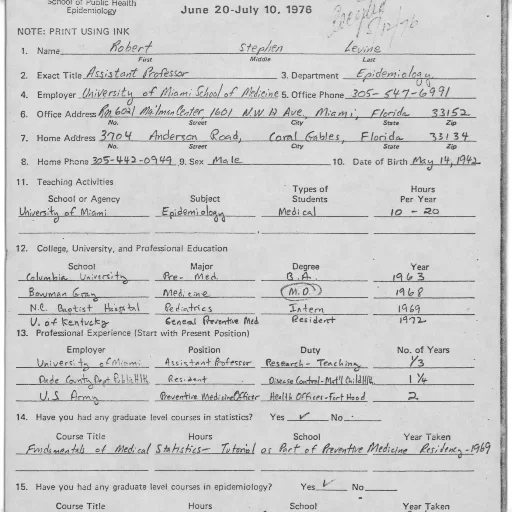 School of Public Health
Epidemiology
June 20-July 10, 1976
NOTE: PRINT USING INK
1. Name Robert Stephen Levine
First Middle Last
2. Exact Title Assistant Professor 3. Department Epidemiology
4. Employer University of Miami School of Medicine 5. Office Phone 305-547-6991
6. Office Address Rm 6021 Mailman Center 1601 N.W 12 Ave, Miami, Florida 33152
No. Street City State Zip
7. Home Address 3704 Anderson Road, Coral Gables, Florida 33134
No. Street City State Zip
8. Home Phone 305-442-0949 9. Sex Male 10. Date of Birth May 14, 1942
11. Teaching Activities
School or Agency Subject Types of Students Hours Per Year
University of Miami Epidemiology Medical 10 - 20
12. College, University, and Professional Education
School Major Degree Year
Columbia University Pre- Med. B.A. 1963
Bowman Gray Medicine M.D. 1968
N.C. Baptist Hospital Pediatrics Intern 1969
U. of Kentucky General Preventive Med Resident 1972
13. Professional Experience (Start with Present Position)
Employer Position Duty No. of Years
University of Miami Assistant Professor Research- Teaching 1/3
Dade County Dept Public Hlth Resident Disease Control-Mat'l Child Hlth 1 1/4
U.S. Army Preventive Medicine Officer Health Officer-Fort Hood 2
14. Have you had any graduate level courses in statistics? Yes ✓ No
Course Title Hours School Year Taken
Fundamentals of Medical Statistics- Tutorial as Part of Preventive Medicine Residency-1969
15. Have you had any graduate level courses in epidemiology? Yes ✓ No
Course Title Hours School Year Taken